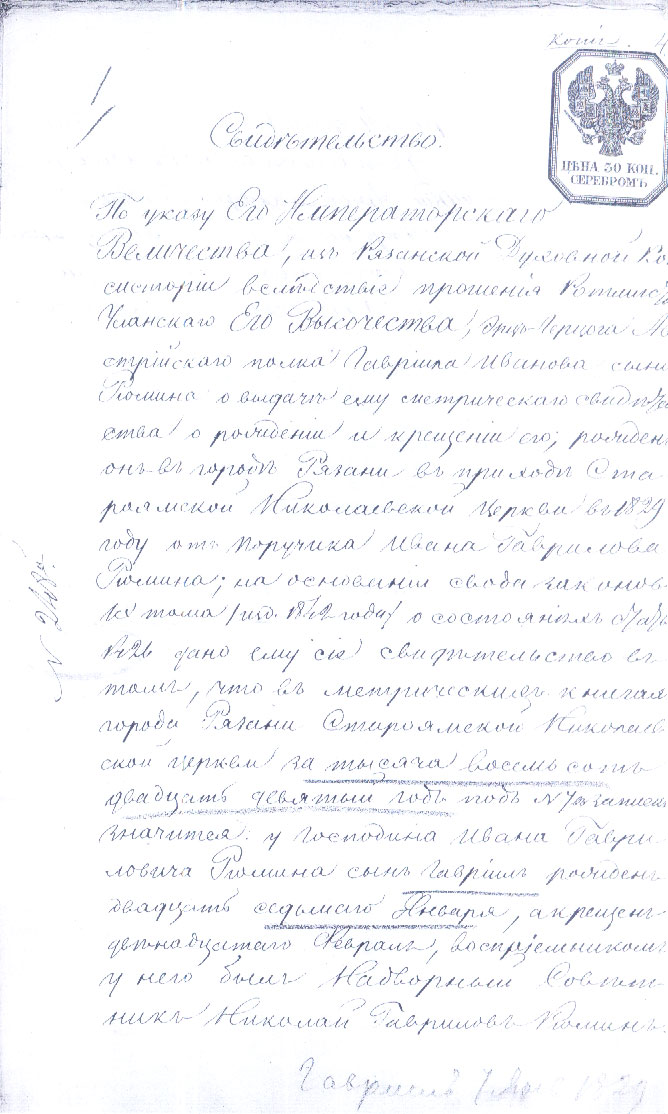 копія. 4
ЦѢНА 30 КОП.
СЕРЕБРОМЪ
Свидѣтельство.
По указу Его Императорскаго
Величества, изъ Рязанской Духовной Ко
систоріи вслѣдствіе прошенія Ротмист
Уланскаго Его Высочества, Эрцъ-Герцога Ав
стрійскаго полка Гавріила Иванова сына
Рюмина о выдачѣ ему метрическаго свидѣтель
ства о рожденіи и крещеніи его; рожденъ
онъ въ городѣ Рязани въ приходѣ Ста
роямской Николаевской церкви въ 1829
году отъ Поручика Ивана Гаврилова
Рюмина; на основаніи свода законовъ
IX тома /изд. 1842 года/ о состояніяхъ
дано ему сіе свидѣтельство въ
томъ, что въ метрическихъ книгахъ
города Рязани Староямской Николаев
ской церкви за тысяча восемь сотъ
двадцать девятый годъ подъ № записью
значится: у Господина Ивана Гаври
ловича Рюмина сынъ Гавріилъ рожденъ
двадцать седьмаго Января, а крещенъ
двѣнадцатаго Февраля, воспріемникомъ
у него былъ Надворный Совѣт
никъ Николай Гавриловъ Рюминъ.
Гавриилъ 1829